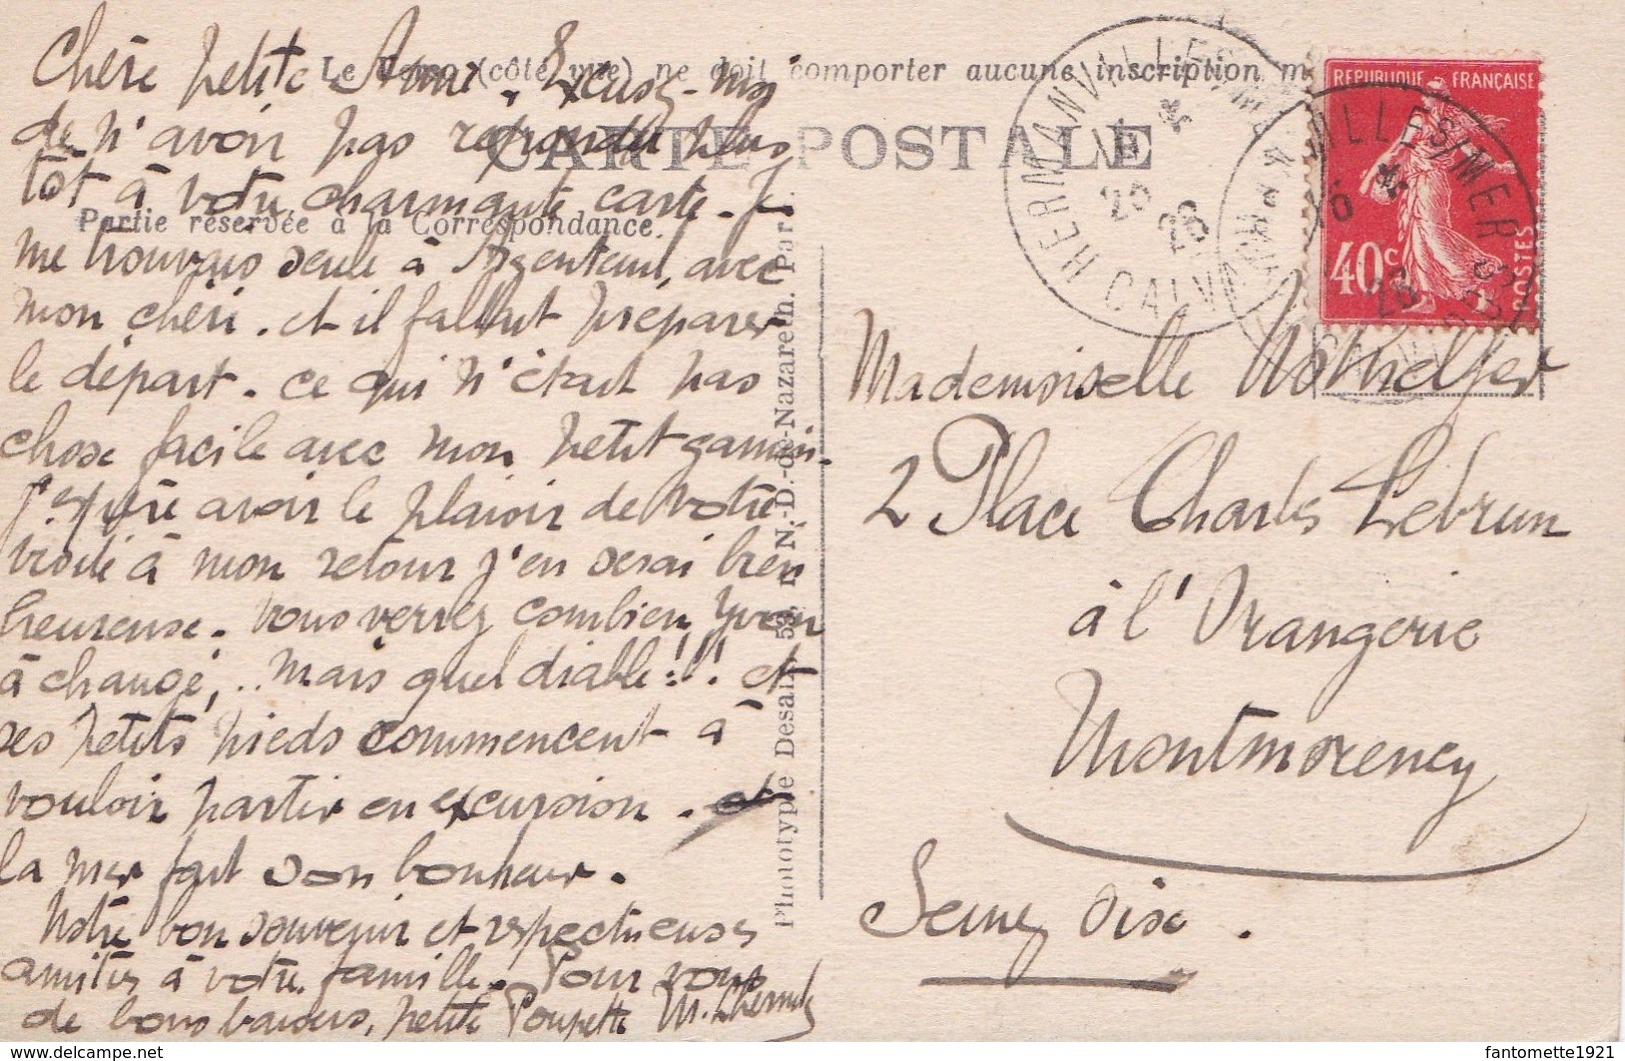 Le Verso (côté vue) ne doit comporter aucune inscription m
CARTE POSTALE
Partie réservée à la Correspondance.
Chère petite Amie. Excusez-moi
de n'avoir pas répondu plus
tôt à votre charmante carte. Je
me trouvais seule à Argenteuil, avec
mon chéri. et il fallait préparer
le départ. ce qui n'était pas
chose facile avec mon petit gamin.
J'espère avoir le plaisir de votre
visite à mon retour j'en serai bien
heureuse. Vous verrez combien Yvon
à changé,.. Mais quel diable!!! et
ses petits pieds commencent à
vouloir partir en excursion.
la mer fait son bonheur.
Notre bon souvenir et respectueuses
amitiés à votre famille. Pour vous
de bons baisers, petite Poupette M.
Phototypie Desaix, 53, r. N.-D.-de-Nazareth. Paris.
HERMANVILLE S/MER
CALVADOS
26
REPUBLIQUE FRANÇAISE
40c
POSTES
Mademoiselle
2 Place Charles Lebrun
à l'Orangerie
Montmorency
Seine Oise.
fantomette1921